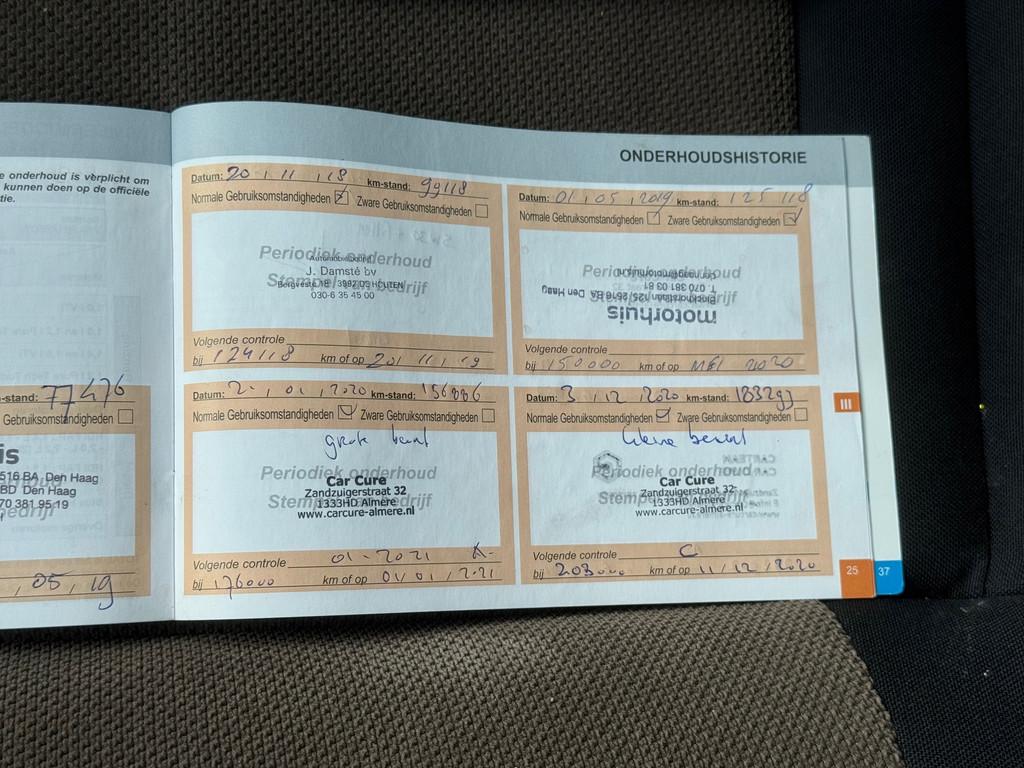 e onderhoud is verplicht om
kunnen doen op de officiële
tie.
-stand: 77476
Gebruiksomstandigheden
is
516 BA Den Haag
BD Den Haag
70 381 95 19
bedrijf
, 05 , 19
ONDERHOUDSHISTORIE
Datum: 20 , 11 , 18 km-stand: 99118
Normale Gebruiksomstandigheden Zware Gebruiksomstandigheden
Periodiek onderhoud
J. Damsté bv
Stempel bedrijf
030-6 35 45 00
Volgende controle
bij 124118 km of op 20 , 11 , 19
Datum: 01 , 05 , 2019 km-stand: 125 118
Normale Gebruiksomstandigheden Zware Gebruiksomstandigheden
Periodiek onderhoud
T. 070 381 03 81
Stempel bedrijf
motorhuis
Volgende controle
bij 150000 km of op MEI 2020
Datum: 2 , 01 , 2020 km-stand: 156886
Normale Gebruiksomstandigheden Zware Gebruiksomstandigheden
grote beurt
Periodiek onderhoud
Car Cure
Stempel bedrijf
Zandzuigerstraat 32
1333HD Almere
www.carcure-almere.nl
Volgende controle 01-2021
bij 176000 km of op 01 , 01 , 2021
Datum: 3 , 12 , 2020 km-stand: 183293
Normale Gebruiksomstandigheden Zware Gebruiksomstandigheden
kleine beurt
Periodiek onderhoud
Car Cure
Stempel bedrijf
Zandzuigerstraat 32
1333HD Almere
www.carcure-almere.nl
Volgende controle C
bij 203000 km of op 11 , 12 , 2020
III
25
37